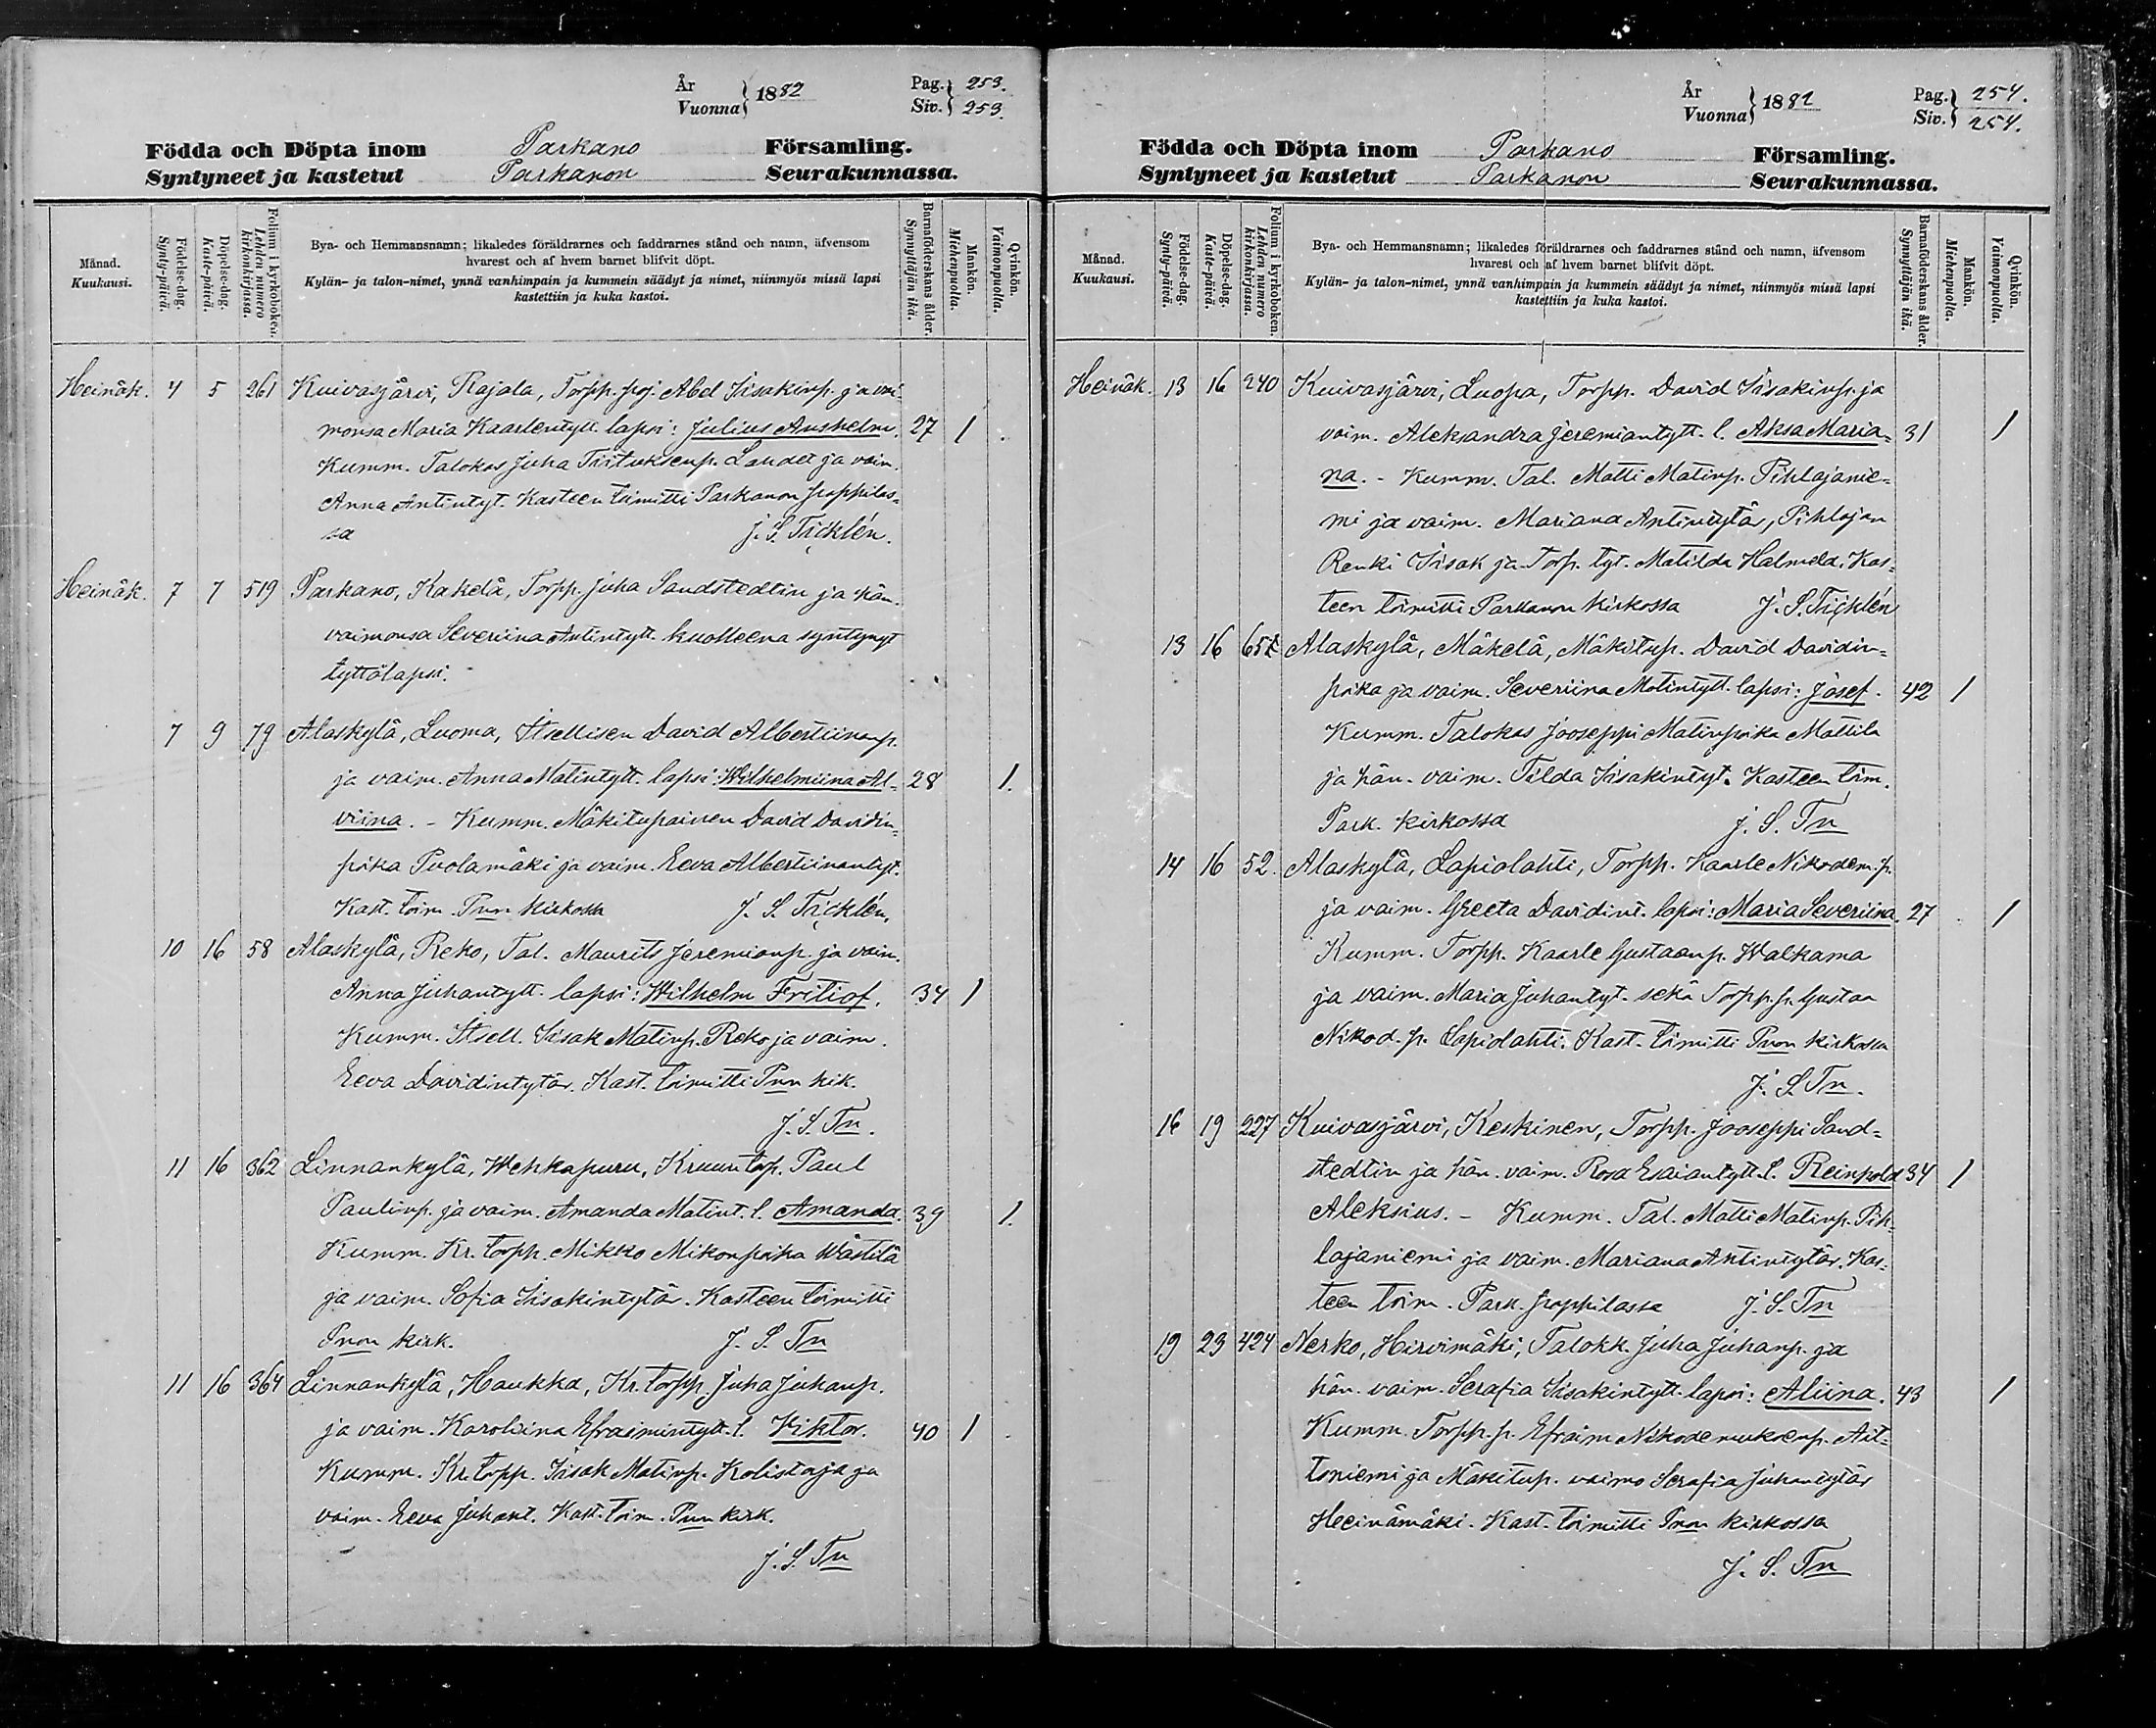 År
Vuonna } 1882
Pag. } 253.
Siv. } 253.
Födda och Döpta inom Parkano Församling.
Syntyneet ja kastetut Parkanon Seurakunnassa.
Månad.
Kuukausi.
Födelse-dag.
Synty-päivä.
Döpelse-dag.
Kaste-päivä.
Folium i kyrkoboken.
Lehden numero kirkonkirjassa.
Bya- och Hemmansnamn; likaledes föräldrarnes och faddrarnes stånd och namn, äfvensom
hvarest och af hvem barnet blifvit döpt.
Kylän- ja talon-nimet, ynnä vanhimpain ja kummein säädyt ja nimet, niinmyös missä lapsi
kastettiin ja kuka kastoi.
Barnaföderskans ålder.
Synnyttäjän ikä.
Mankön.
Miehenpuolta.
Qvinkön.
Vaimonpuolta.
Heinäk. 4 5 261 Kuivasjärvi, Rajala, Torpp. poj. Abel Iisakinp. ja vai-
monsa Maria Kaarlentytt. lapsi: Julius Anshelm. 27 1
Kumm. Talokas Juha Tiituksenp. Landet ja vaim.
Anna Antintyt. Kasteen toimitti Parkanon pappilas-
sa J. S. Ticklén.
Heinäk. 7 7 519 Parkano, Kakelä, Torpp. Juha Sandstedtin ja hän.
vaimonsa Severiina Antintytt. kuolleena syntynyt
tyttölapsi.
7 9 79 Alaskylä, Luoma, Itsellisen David Albertiinanp.
ja vaim. Anna Matintytt. lapsi: Wilhelmiina Al- 28 1.
viina. - Kumm. Mäkitupainen David Davidin-
poika Puolamäki ja vaim. Eeva Albertiinantyt.
Kast. toim. Pnon kirkossa J. S. Ticklén.
10 16 58 Alaskylä, Reko, Tal. Maurits Jeremianp. ja vaim.
Anna Juhantytt. lapsi: Wilhelm Fritiof. 34 1
Kumm. Itsell. Iisak Matinp. Reko ja vaim.
Eeva Davidintytär. Kast. toimitti Pnon kirk.
J. S. Tn.
11 16 362 Linnankylä, Wehkapuru, Kruun torp. Paul
Paulinp. ja vaim. Amanda Matint. l. Amanda. 39 1.
Kumm. Kr. torpp. Mikko Mikonpoika Wästilä
ja vaim. Sofia Iisakintytär. Kasteen toimitti
Pnon kirk. J. S. Tn
11 16 364 Linnankylä, Haukka, Kr. torpp. Juha Juhanp.
ja vaim. Karoliina Efraimintytt. l. Viktor. 40 1
Kumm. Kr. torpp. Iisak Matinp. Kolistaja ja
vaim. Eeva Juhant. Kast. toim. Pnon kirk.
J. S. Tn
År
Vuonna } 1882
Pag. } 254.
Siv. } 254.
Födda och Döpta inom Parkano Församling.
Syntyneet ja kastetut Parkanon Seurakunnassa.
Månad.
Kuukausi.
Födelse-dag.
Synty-päivä.
Döpelse-dag.
Kaste-päivä.
Folium i kyrkoboken.
Lehden numero kirkonkirjassa.
Bya- och Hemmansnamn; likaledes föräldrarnes och faddrarnes stånd och namn, äfvensom
hvarest och af hvem barnet blifvit döpt.
Kylän- ja talon-nimet, ynnä vanhimpain ja kummein säädyt ja nimet, niinmyös missä lapsi
kastettiin ja kuka kastoi.
Barnaföderskans ålder.
Synnyttäjän ikä.
Mankön.
Miehenpuolta.
Qvinkön.
Vaimonpuolta.
Heinäk. 13 16 240 Kuivasjärvi, Luopa, Torpp. David Iisakinp. ja
vaim. Aleksandra Jeremiantytt. l. Aksa Maria- 31 1
na. - Kumm. Tal. Matti Matinp. Pihlajanie-
mi ja vaim. Mariana Antintytär, Pihlajan
Renki Iisak ja Torp. tyt. Matilda Halmela. Kas-
teen toimitti Parkanon kirkossa J. S. Ticklén
13 16 651 Alaskylä, Mäkelä, Mäkitup. David Davidin-
poika ja vaim. Severiina Matintytt. lapsi: Josef. 42 1
Kumm. Talokas Jooseppi Matinpoika Mattila
ja hän. vaim. Tilda Iisakintyt. Kasteen toim.
Park. kirkossa J. S. Tn
14 16 52. Alaskylä, Lapiolahti, Torpp. Kaarle Nikodem. p.
ja vaim. Greeta Davidint. lapsi: Maria Severiina. 27 1
Kumm. Torpp. Kaarle Gustaanp. Walkama
ja vaim. Maria Juhantyt. sekä Torpp. p. Gustaa
Nikod. p. Lapiolahti. Kast. toimitti Pnon kirkossa
J. S. Tn.
16 19 227 Kuivasjärvi, Keskinen, Torpp. Jooseppi Sand-
stedtin ja hän. vaim. Rosa Esaiantytt. l. Reinhold 34 1
Aleksius. - Kumm. Tal. Matti Matinp. Pih-
lajaniemi ja vaim. Mariana Antintytär. Kas-
teen toim. Park. pappilassa J. S. Tn
19 23 424 Nerko, Hirvimäki, Talokk. Juha Juhanp. ja
hän. vaim. Serafia Iisakintytt. lapsi: Aliina. 43 1
Kumm. Torpp. p. Efraim Nikodemuksenp. Ait-
toniemi ja Mäkitup. vaimo Serafia Juhantytär
Heeinämäki. Kast. toimitti Pnon kirkossa
J. S. Tn